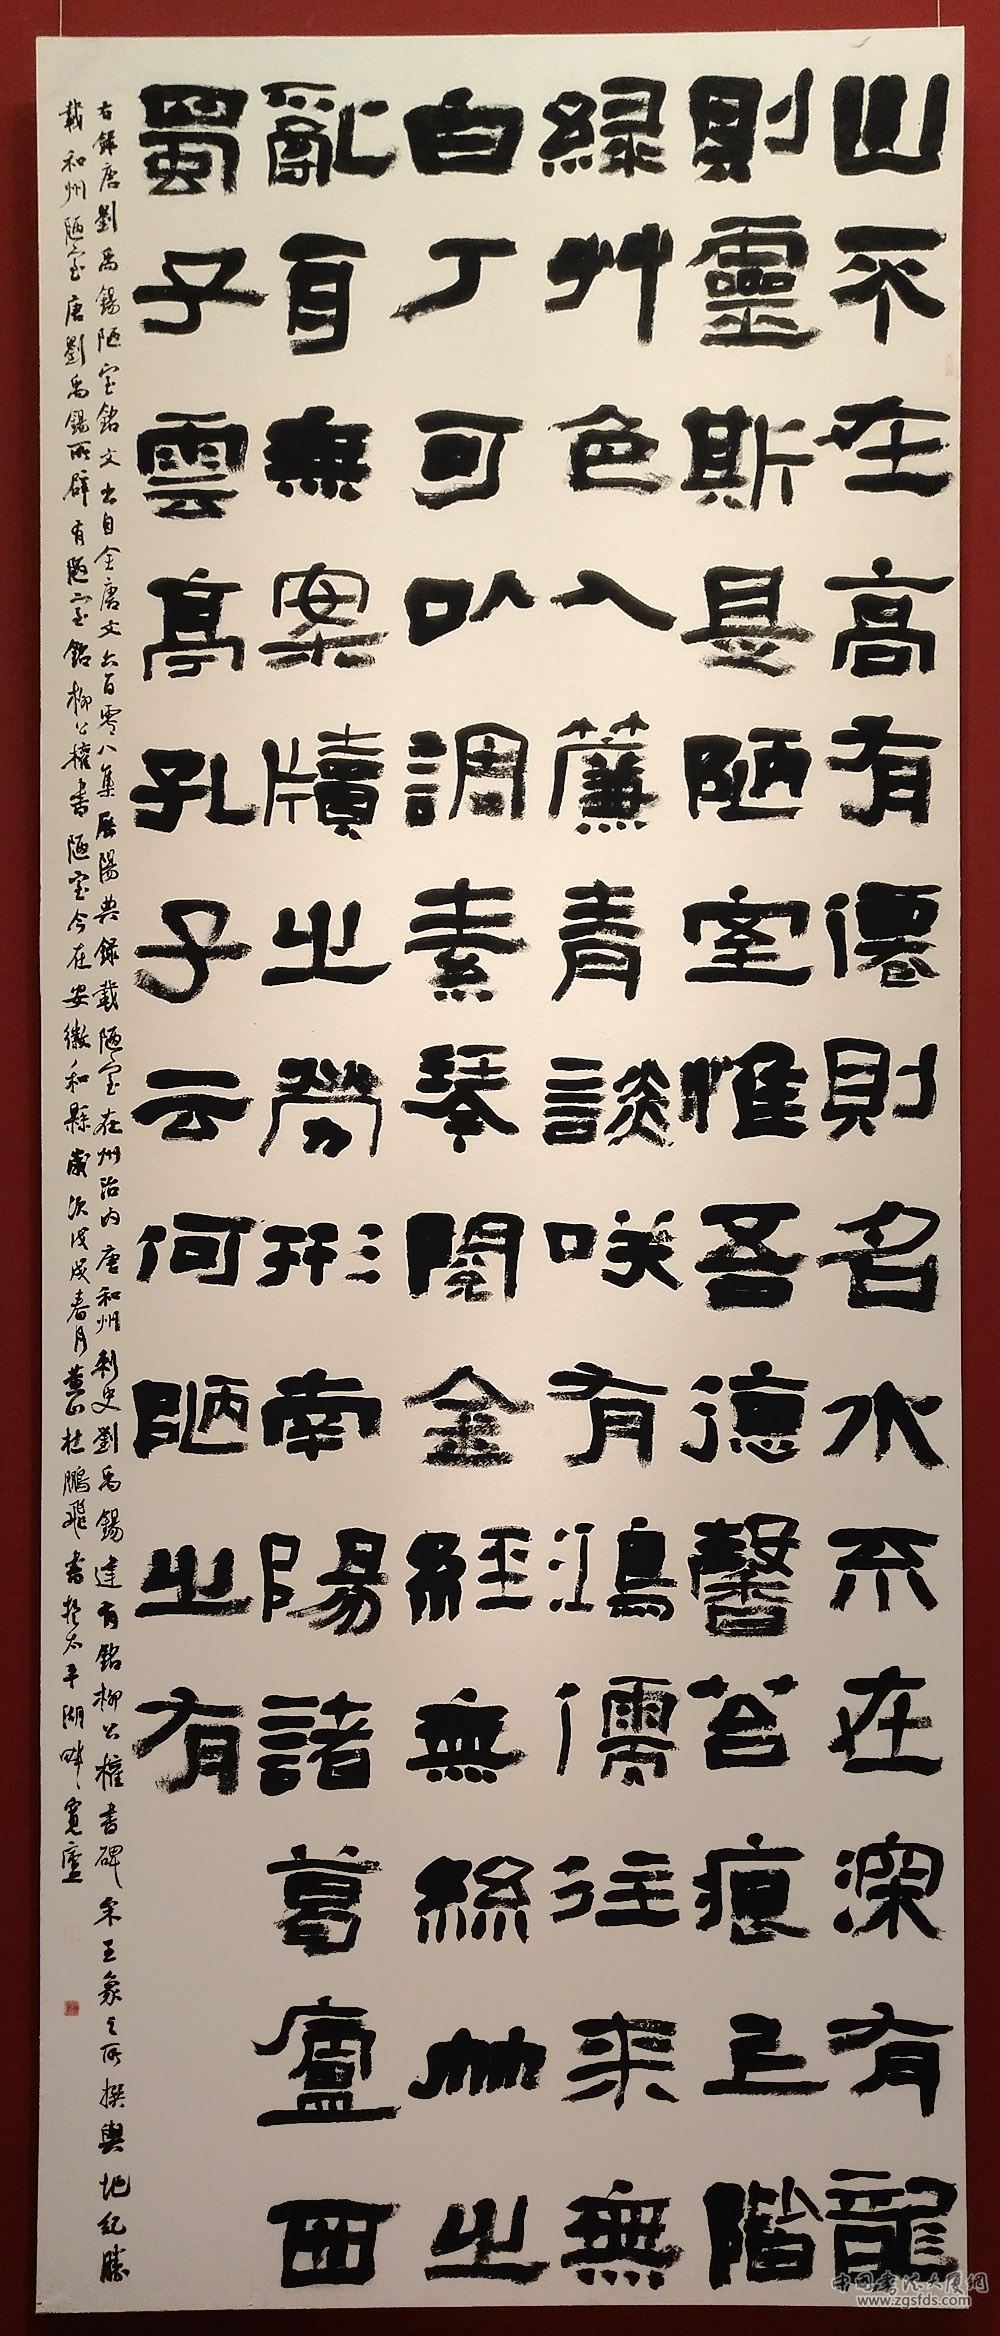 山不在高有德則名水不在深有龍
則靈斯是陋室惟吾德馨苔痕上階
緑艸色入簾青談咲有鴻儒往来無
白丁可以調素琴閱金經無絲竹之
亂耳無案牘之勞形南陽諸葛廬西
蜀子雲亭孔子云何陋之有
右錄唐劉禹錫陋室銘文出自全唐文六百零八集歷陽典錄載陋室在州治内唐和州刺史劉禹錫建有銘柳公權書碑宋王象之所撰輿地紀勝
載和州陋室唐劉禹錫所辟有陋室銘柳公權書陋室今在安徽和縣歲次戊戌春月黄山杜鵬飛書於太平湖畔寬廬
中国書法大厦網
www.zgsfds.com